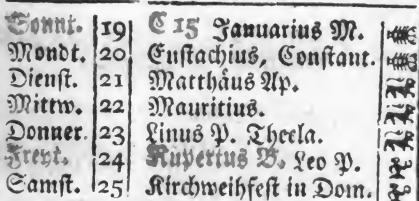 Sonnt. 19 C 15 Januarius M.
Mondt. 20 Eustachius, Constant.
Dienst. 21 Matthäus Ap.
Mittw. 22 Mauritius.
Donner. 23 Linus P. Thecla.
Freyt. 24 Rupertus B. Leo P.
Samst. 25 Kirchweihfest in Dom.